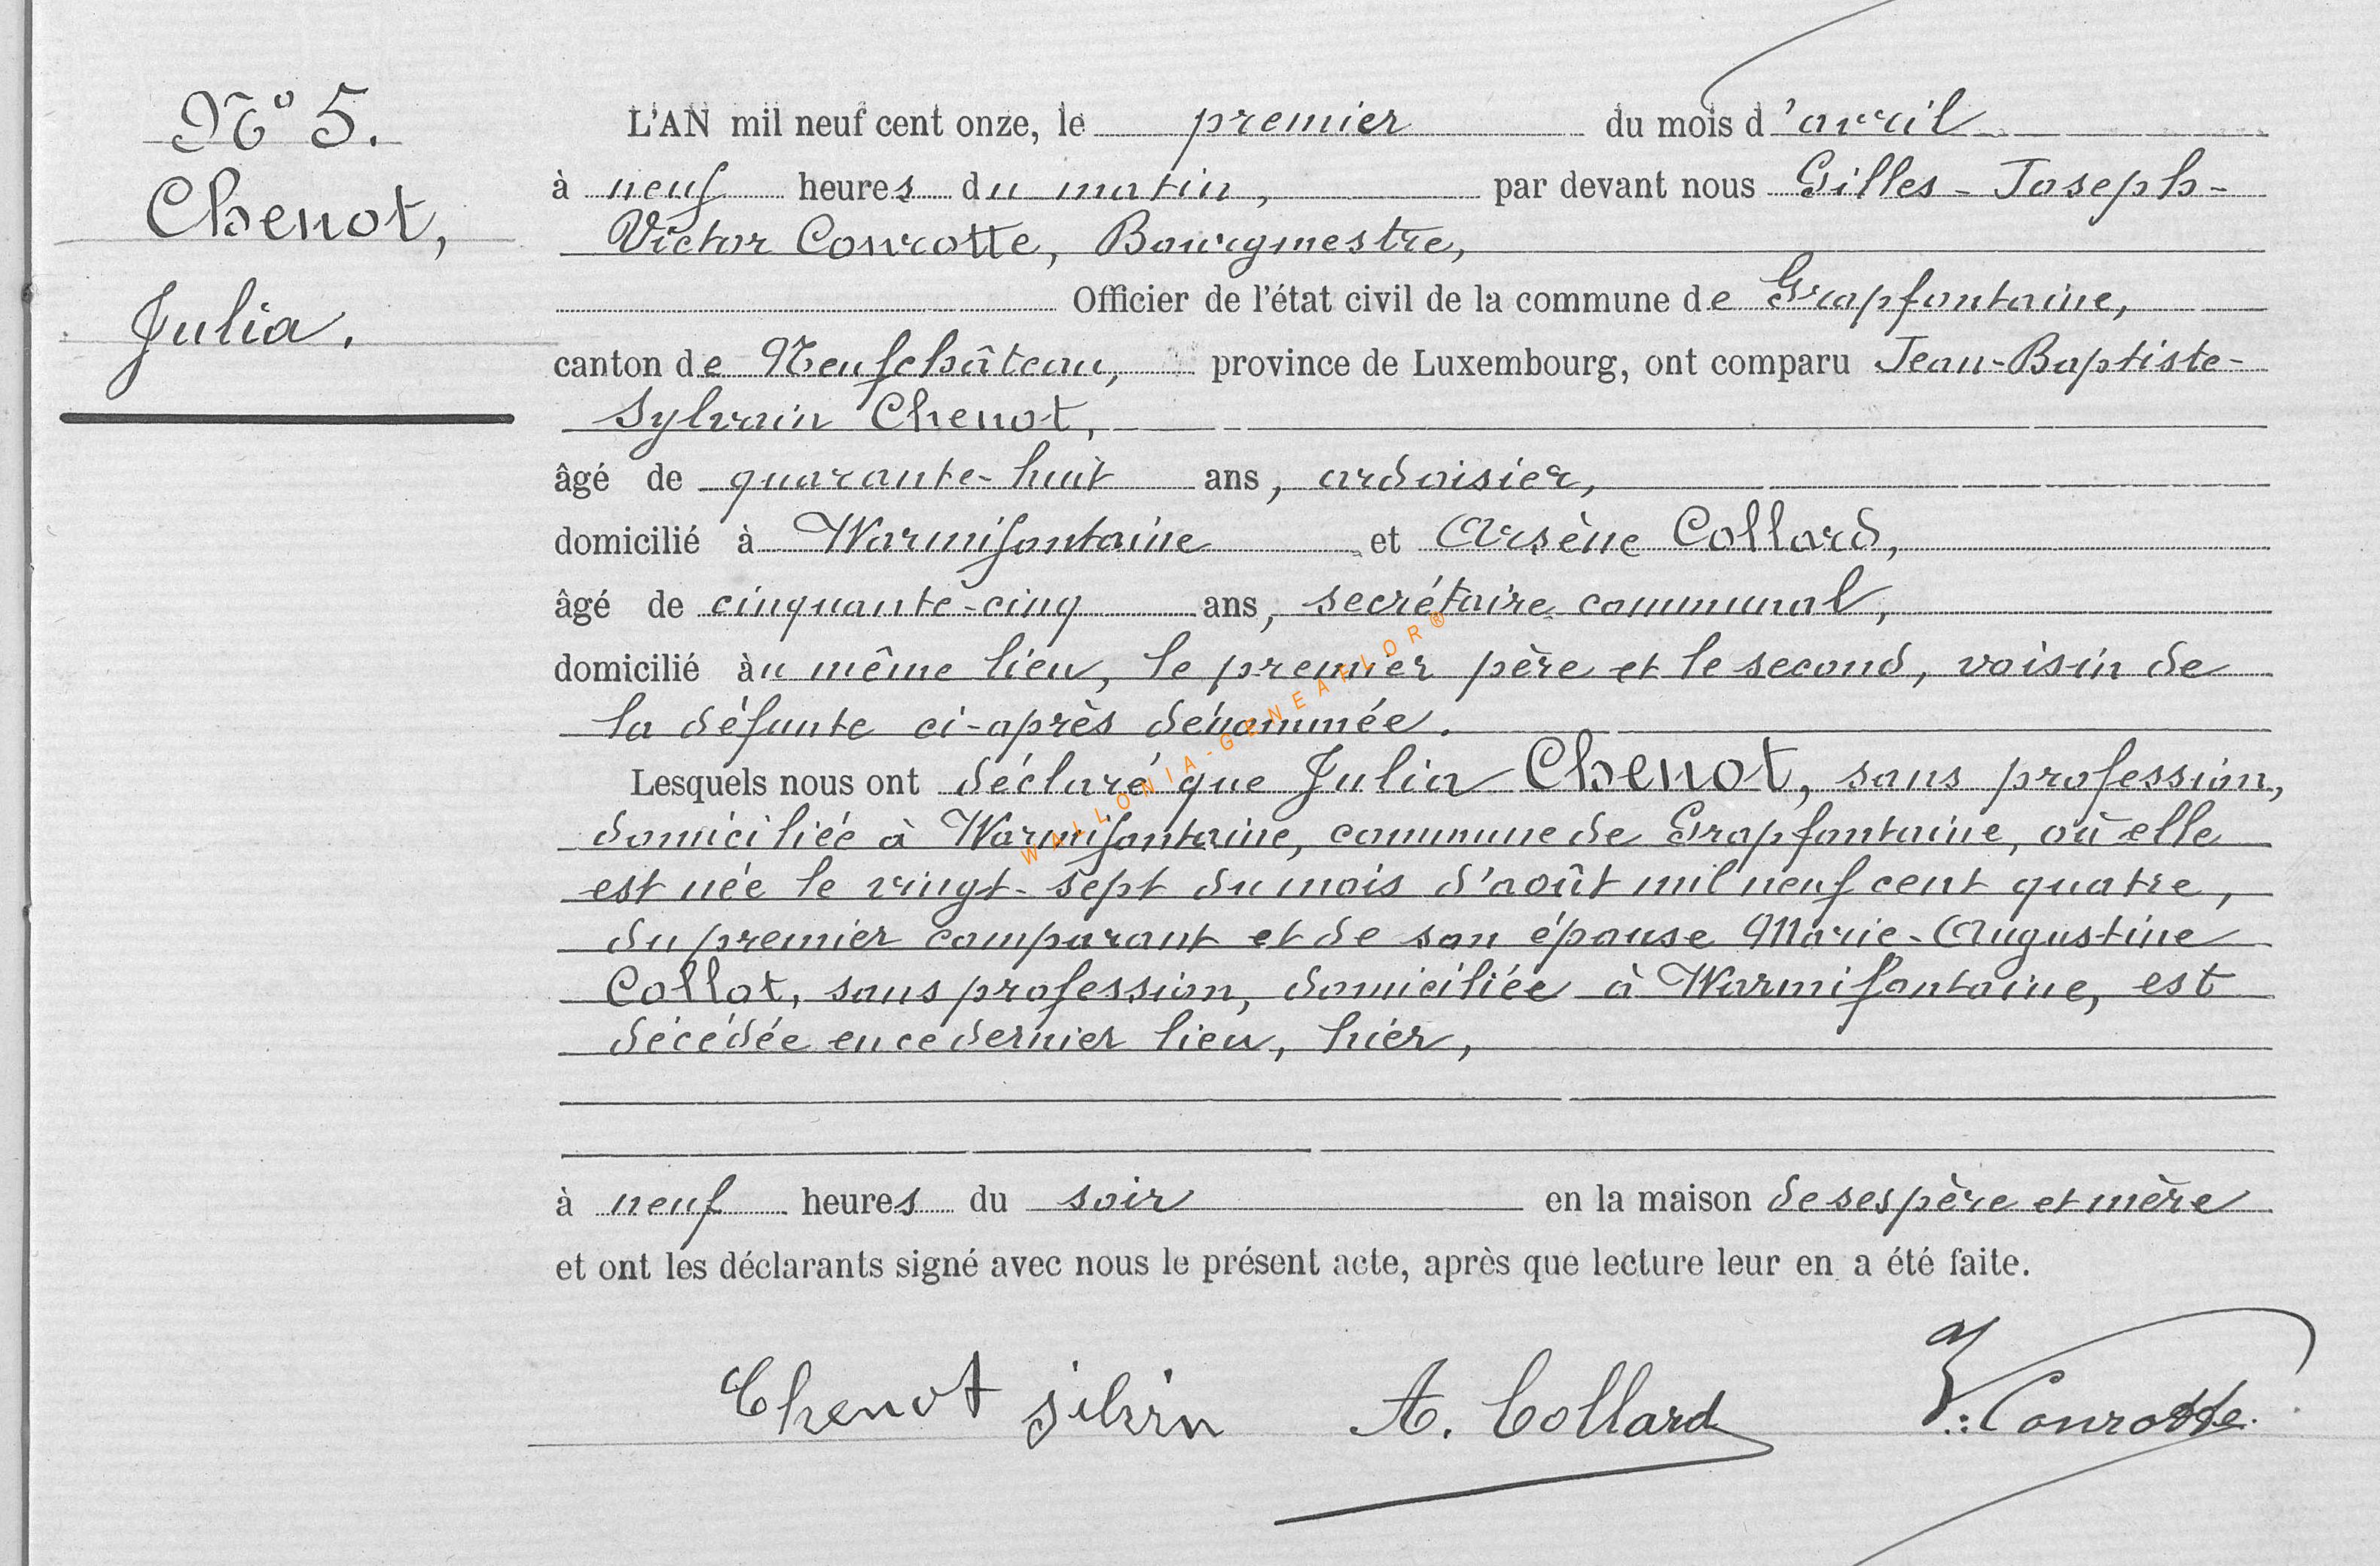 N° 5.
Chenot,
Julia.
L'AN mil neuf cent onze, le premier du mois d'avril
à neuf heures du matin, par devant nous Gilles-Joseph-
Victor Conrotte, Bourgmestre,
Officier de l'état civil de la commune de Grapfontaine,
canton de Neufchâteau, province de Luxembourg, ont comparu Jean-Baptiste-
Sylvain Chenot,
âgé de quarante-huit ans, ardoisier,
domicilié à Warmifontaine et Arsène Collard,
âgé de cinquante-cinq ans, secrétaire communal,
domicilié àu même lieu, le premier père et le second, voisin de
la défunte ci-après dénommée.
Lesquels nous ont déclaré que Julia Chenot, sans profession,
domiciliée à Warmifontaine, commune de Grapfontaine, où elle
est née le vingt-sept du mois d'août mil neuf cent quatre,
du premier comparant et de son épouse Marie-Augustine
Collot, sans profession, domiciliée à Warmifontaine, est
décédée en ce dernier lieu, hier,
à neuf heures du soir en la maison de ses père et mère
et ont les déclarants signé avec nous le présent acte, après que lecture leur en a été faite.
Chenot silvin A. Collard V. Conrotte
WALLONIA-GENEAFLOR®